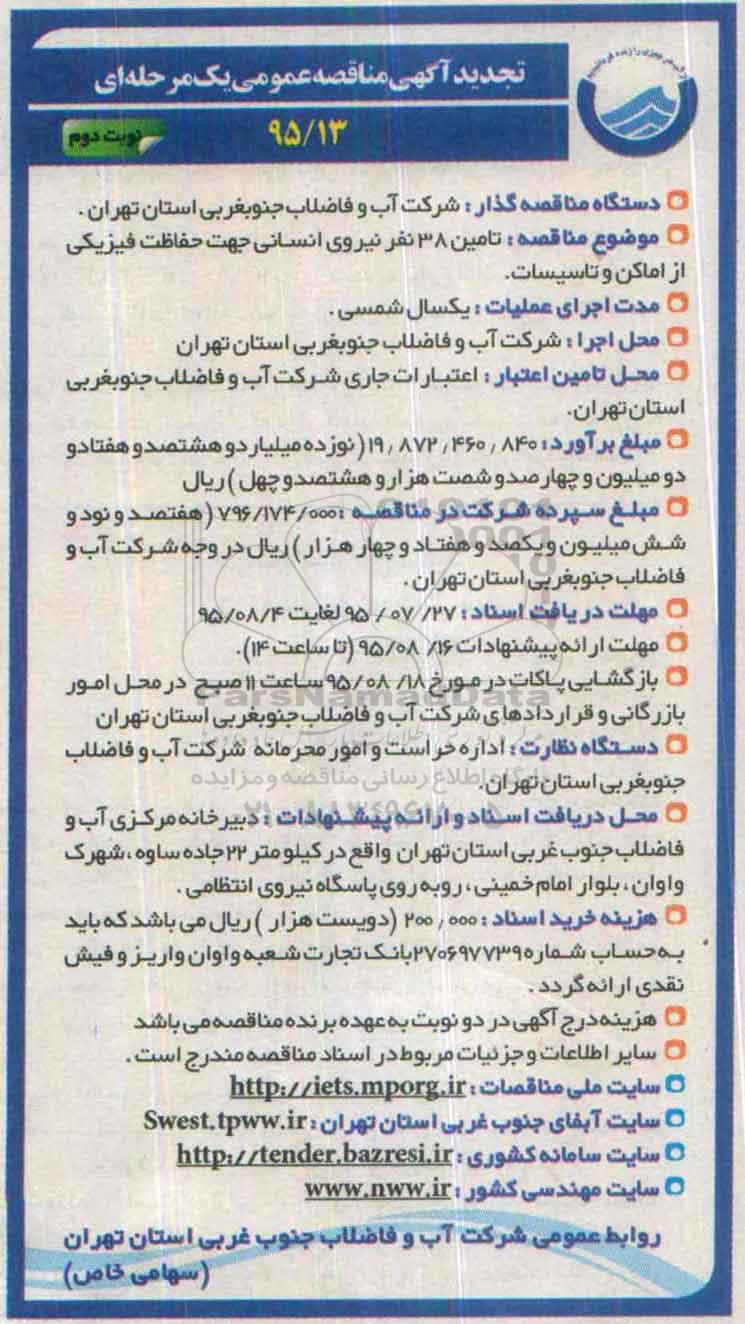 تجدید آگهی مناقصه عمومی یک مرحله‌ای
۹۵/۱۳
نوبت دوم
دستگاه مناقصه گذار : شرکت آب و فاضلاب جنوبغربی استان تهران .
موضوع مناقصه : تامین ۳۸ نفر نیروی انسانی جهت حفاظت فیزیکی
از اماکن و تاسیسات.
مدت اجرای عملیات : یکسال شمسی .
محل اجرا : شرکت آب و فاضلاب جنوبغربی استان تهران
محل تامین اعتبار : اعتبارات جاری شرکت آب و فاضلاب جنوبغربی
استان تهران.
مبلغ برآورد : ۱۹٫۸۷۲٫۴۶۰٫۸۴۰ ( نوزده میلیارد و هشتصد و هفتاد و
دو میلیون و چهارصد و شصت هزار و هشتصد و چهل ) ریال
مبلغ سپرده شرکت در مناقصه : ۷۹۶/۱۷۴/۰۰۰ ( هفتصد و نود و
شش میلیون و یکصد و هفتاد و چهار هزار ) ریال در وجه شرکت آب و
فاضلاب جنوبغربی استان تهران .
مهلت دریافت اسناد : ۹۵/۰۷/۲۷ لغایت ۹۵/۰۸/۴
مهلت ارائه پیشنهادات ۹۵/۰۸/۱۶ (تا ساعت ۱۴).
بازگشایی پاکات در مورخ ۹۵/۰۸/۱۸ ساعت ۱۱ صبح در محل امور
بازرگانی و قراردادهای شرکت آب و فاضلاب جنوبغربی استان تهران
ParsNamadData
دستگاه نظارت : اداره حراست و امور محرمانه شرکت آب و فاضلاب
جنوبغربی استان تهران.
پایگاه اطلاع رسانی مناقصه و مزایده
محل دریافت اسناد و ارائه پیشنهادات : دبیرخانه مرکزی آب و
فاضلاب جنوب غربی استان تهران واقع در کیلومتر ۲۲ جاده ساوه ، شهرک
واوان ، بلوار امام خمینی ، روبه روی پاسگاه نیروی انتظامی .
هزینه خرید اسناد : ۲۰۰٫۰۰۰ (دویست هزار ) ریال می باشد که باید
به حساب شماره ۲۷۰۶۹۷۷۳۹ بانک تجارت شعبه واوان واریز و فیش
نقدی ارائه گردد .
هزینه درج آگهی در دو نوبت به عهده برنده مناقصه می باشد
سایر اطلاعات و جزئیات مربوط در اسناد مناقصه مندرج است .
سایت ملی مناقصات : http://iets.mporg.ir
سایت آبفای جنوب غربی استان تهران : Swest.tpww.ir
سایت سامانه کشوری : http://tender.bazresi.ir
سایت مهندسی کشور : www.nww.ir
روابط عمومی شرکت آب و فاضلاب جنوب غربی استان تهران
(سهامی خاص)